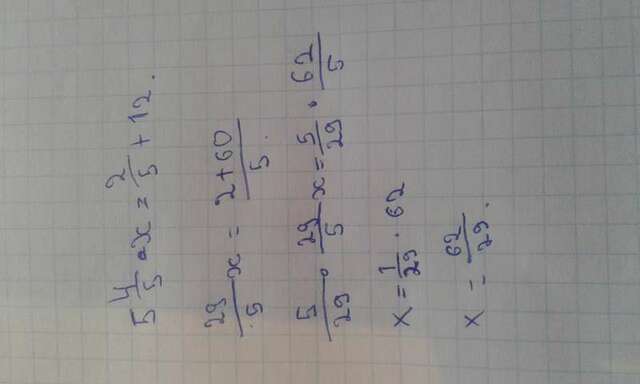 5 4/5 · x = 2/5 + 12.
29/5 x = (2+60)/5.
5/29 · 29/5 x = 5/29 · 62/5
x = 1/29 · 62
x = 62/29.